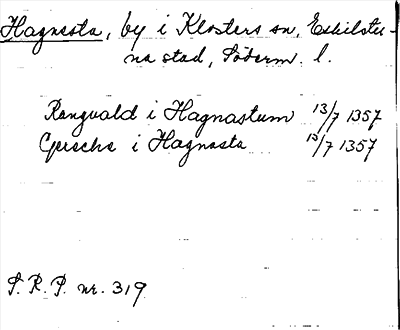 Hagnesta, by i Klosters sn, Eskilstu-
na stad, Söderm. l.
Rangvald i Hagnastum 13/7 1357
i Hagnasta 13/7 1357
S. R. P. nr. 319